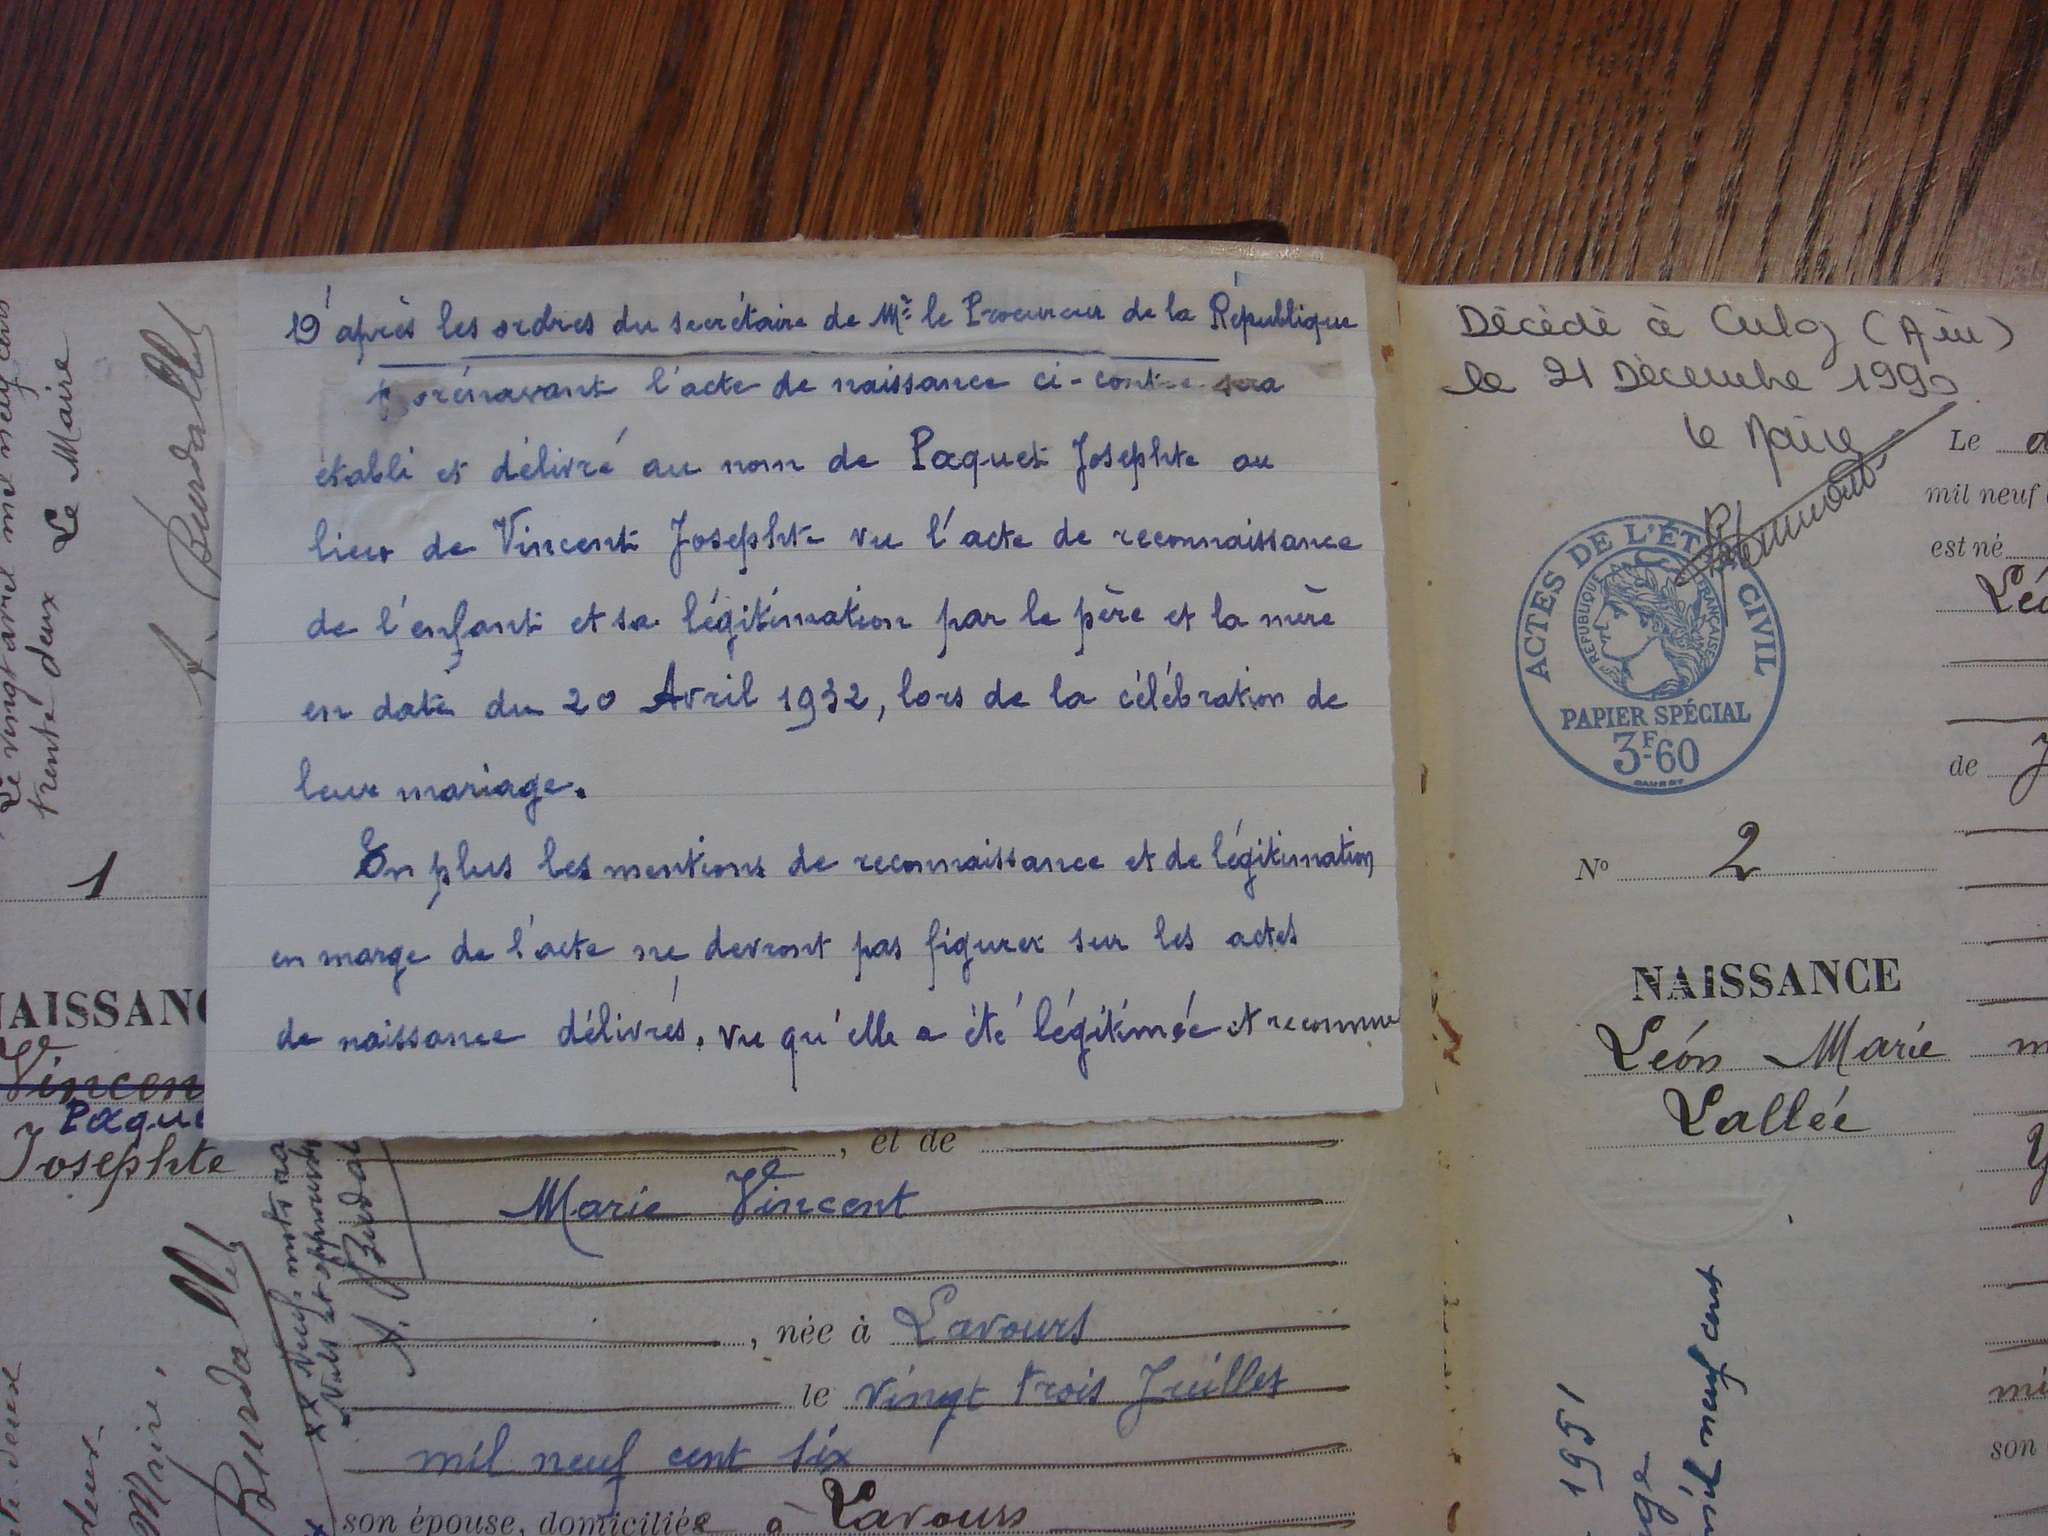 Le vingt avril mil neuf cent
trente deux Le Maire
A. Burdallet
1
NAISSANC
Vincen
Paque
Josephte
Maire,
Burdallet
D'après les ordres du secrétaire de Mr le Procureur de la République
Dorénavant l'acte de naissance ci-contre sera
établi et délivré au nom de Paquet Josephte au
lieu de Vincent Josephte vu l'acte de reconnaissance
de l'enfant et sa légitimation par le père et la mère
en date du 20 Avril 1932, lors de la célébration de
leur mariage.
En plus les mentions de reconnaissance et de légitimation
en marge de l'acte ne devront pas figurer sur les actes
de naissance délivrés, vu qu'elle a été légitimée et reconnue
, et de
Marie Vincent
, née à Lavours
le vingt trois Juillet
mil neuf cent six
son épouse, domiciliée à Lavours
Décédé à Culoz (Ain)
le 21 Décembre 1990
le Maire
ACTES DE L'ÉTAT CIVIL
RÉPUBLIQUE FRANÇAISE
PAPIER SPÉCIAL
3F-60
No 2
NAISSANCE
Léon Marie
Lallée
1951
neuf cent
Le
mil neuf
est né
Léo
de J
mi
son